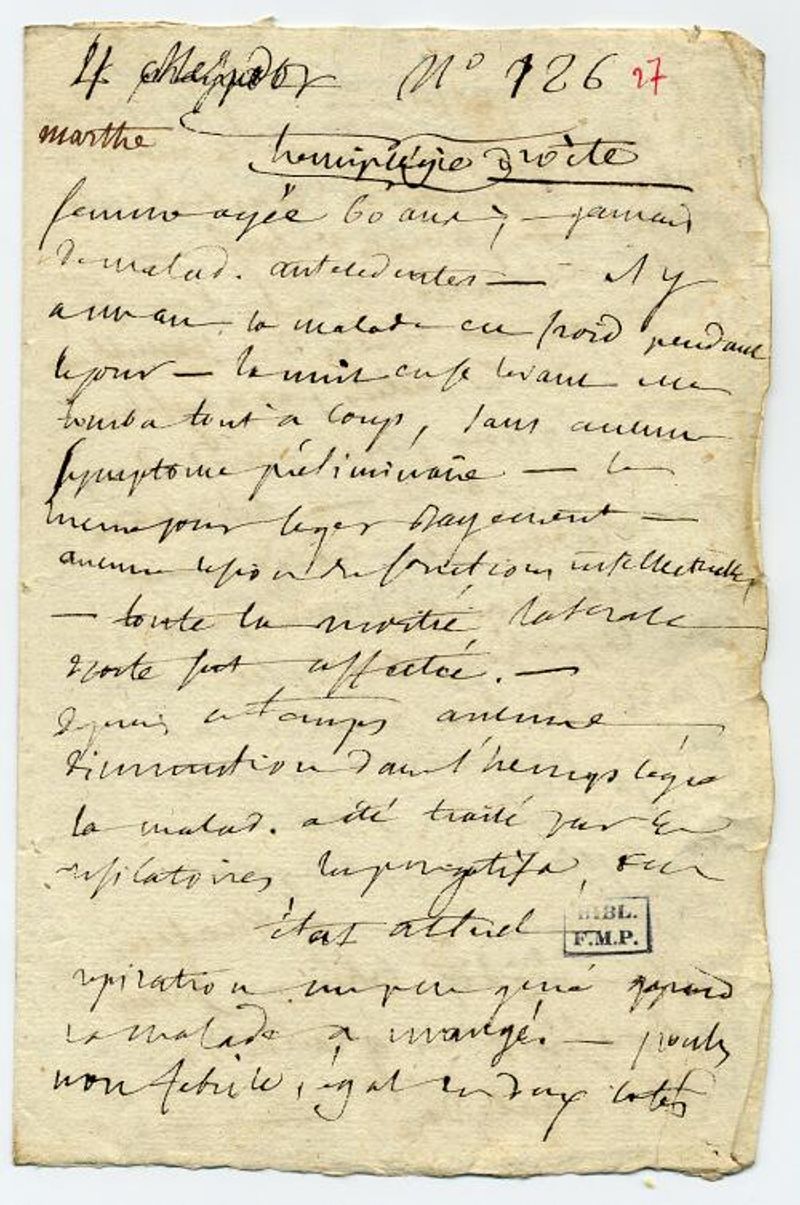 4 N° 126 27
marthe
hemiplégie droite
femme agée 60 ans, — jamais
de malad. antecedentes — il y
a un an la malade eu froid pendant
le jour — la nuit en se levant elle
tomba tout a coup, sans aucun
symptome préliminaire — le
meme jour leger —
aucune des fonctions intellectuelles
— toute la moitié laterale
droite fut affectée. —
depuis ce temps aucune
diminution dans l'hemiplégie
la malad. a été traité par les
vesicatoires les purgatifs,
état actuel
BIBL.
F.M.P.
respiration un peu gené quand
la malade a mangé. — pouls
non febrile, égal des deux cotés